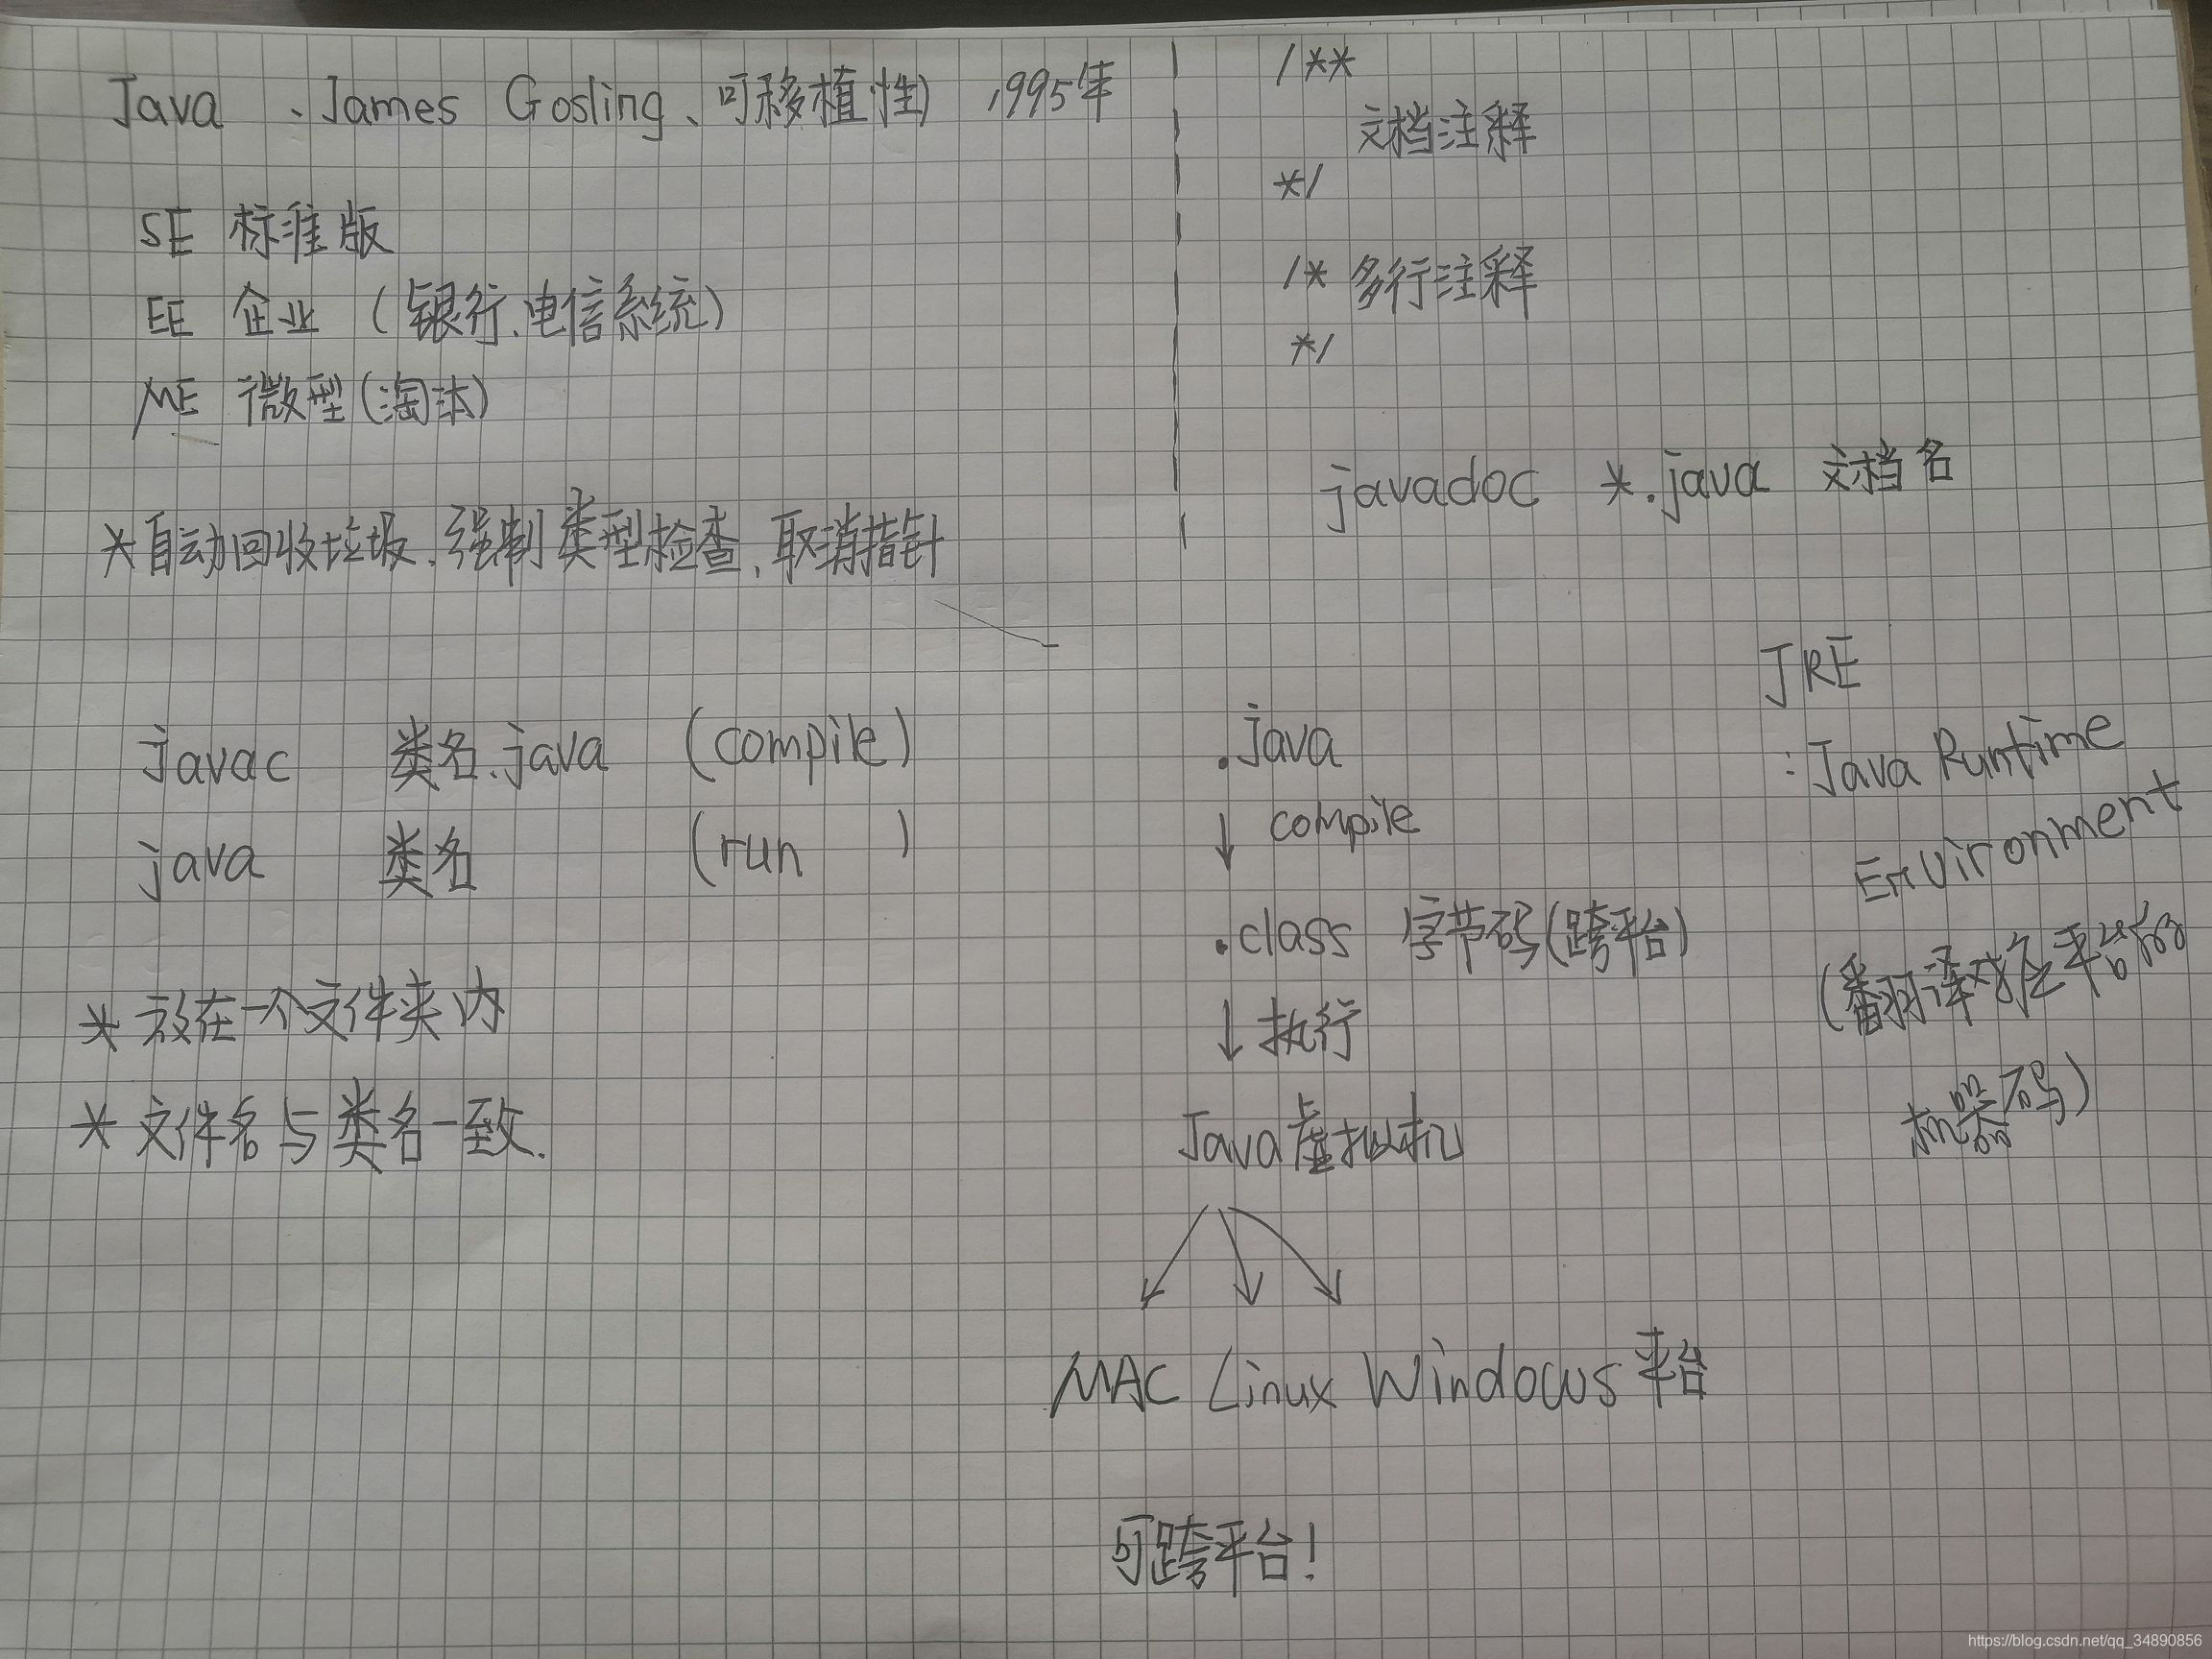 Java 、James Gosling、可移植性) 1995年
SE 标准版
EE 企业 (银行、电信系统)
ME 微型(淘汰)
*自动回收垃圾、强制类型检查、取消指针
/**
文档注释
*/
/* 多行注释
*/
javadoc *.java 文档名
javac 类名.java (compile)
java 类名 (run )
* 放在一个文件夹内
* 文件名与类名一致.
.java
↓ compile
.class 字节码(跨平台)
↓ 执行
Java虚拟机
MAC Linux Windows 平台
可跨平台!
JRE
:Java Runtime
Environment
(翻译对应平台的
机器码)
https://blog.csdn.net/qq_34890856